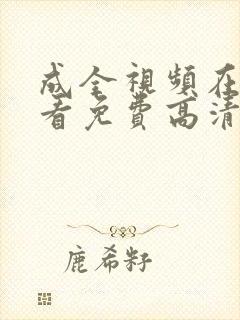 成全視頻在
看免費高清
鹿希籽